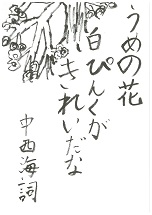 うめの花
白ぴんくが
きれいだな
中西海詞